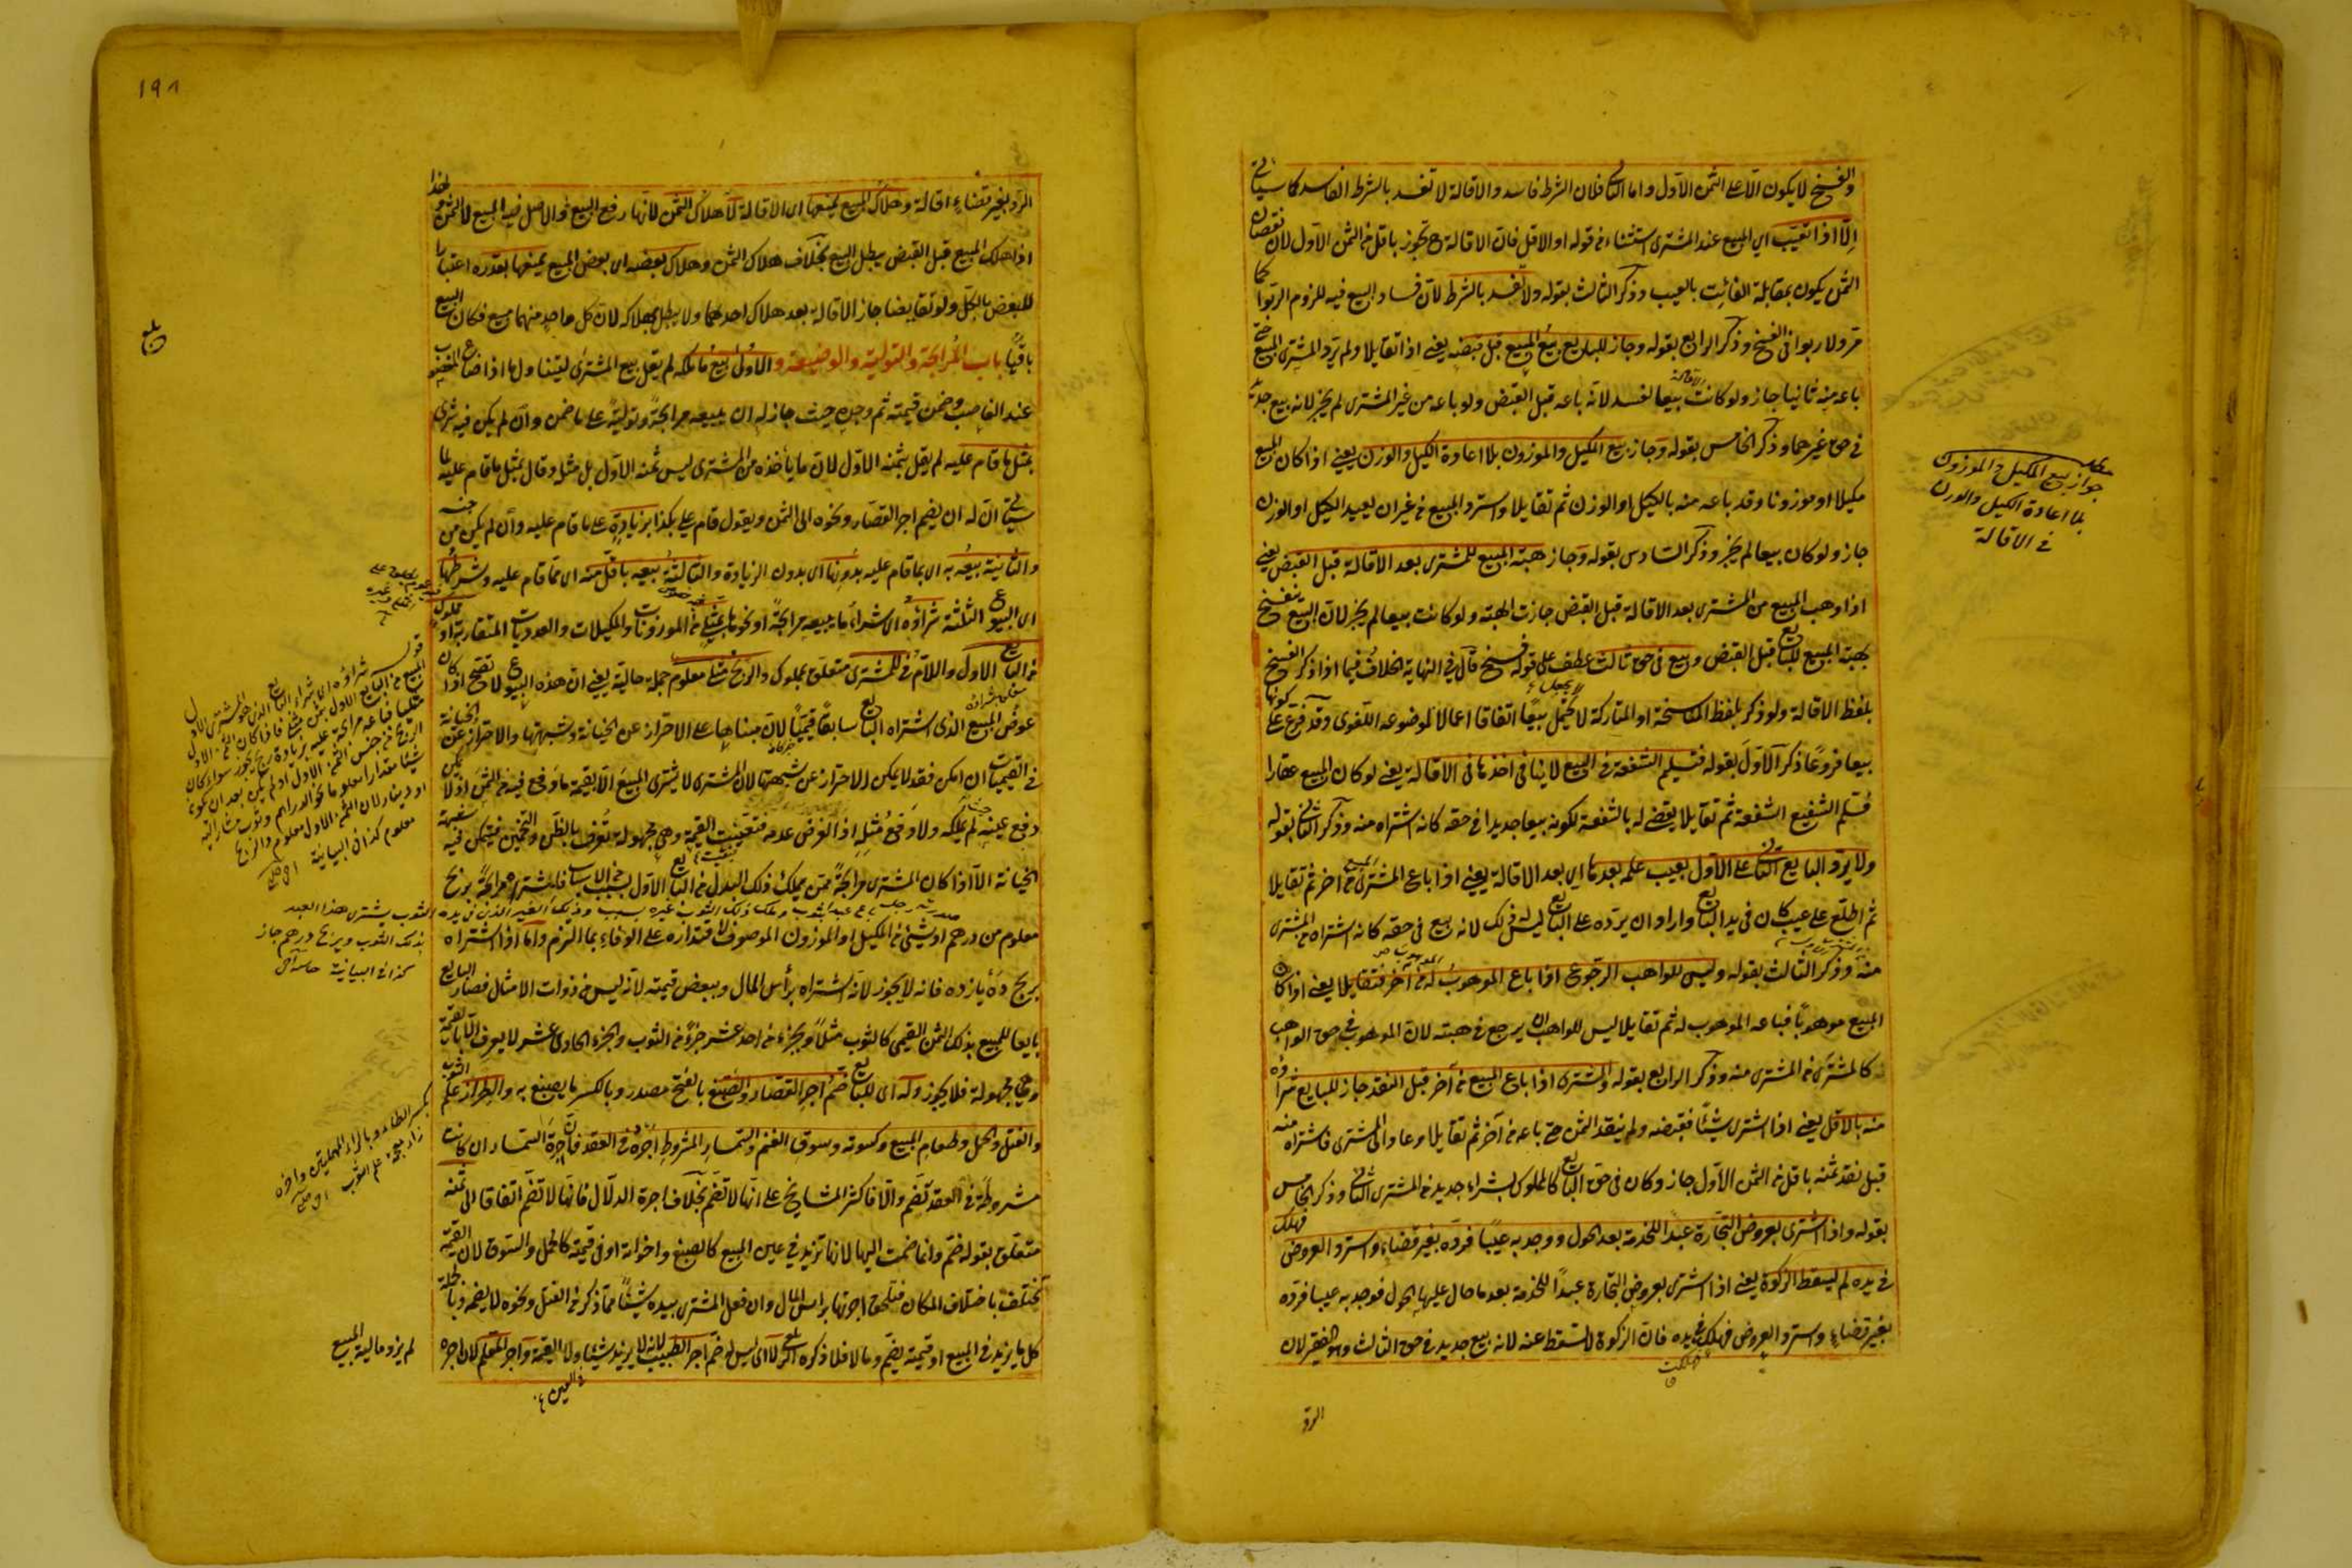 والفسخ لا يكون الا على الثمن الاول واما الثانى فلان الشرط فاسد والاقالة لا تفسد بالشرط الفاسد كما سياتى
الا اذا تعيب اي المبيع عند المشترى استثناء من قوله او الاقل فان الاقالة ح تجوز باقل من الثمن الاول لان نقصان
الثمن يكون بمقابلة الفائت بالعيب وذكر الثالث بقوله ولا تفسد بالشرط لان فساد البيع فيه للزوم الربوا كما
مر ولا ربوا فى الفسخ وذكر الرابع بقوله وجاز للبايع بيع المبيع قبل قبضه يعنى اذا تقايلا ولم يرد المشترى المبيع حتى
باعه منه ثانيا جاز ولو كانت الاقالة بيعا لفسد لانه باعه قبل القبض ولو باعه من غير المشترى لم يجز لانه بيع جديد
فى حق غيرهما وذكر الخامس بقوله وجاز بيع المكيل والموزون بلا اعادة الكيل والوزن يعنى اذا كان المبيع
مكيلا او موزونا وقد باعه منه بالكيل او الوزن ثم تقايلا واسترد المبيع من غير ان يعيد الكيل او الوزن
جاز ولو كان بيعا لم يجز وذكر السادس بقوله وجاز هبة المبيع للمشترى بعد الاقالة قبل القبض يعنى
اذا وهب المبيع من المشترى بعد الاقالة قبل القبض جازت الهبة ولو كانت بيعا لم يجز لان البيع ينفسخ
بهبة المبيع للبايع قبل القبض وبيع فى حق ثالث عطف على قوله فسخ قال فى النهاية الخلاف فيما اذا ذكر الفسخ
بلفظ الاقالة ولو ذكر بلفظ المفاسخة او المتاركة لا يجعل بيعا اتفاقا اعمالا لموضوعه اللغوى وقد فرع على كونها
بيعا فروعا ذكر الاول بقوله فتسليم الشفعة فى البيع لا ينافى اخذها فى الاقالة يعنى لو كان المبيع عقارا
فسلم الشفيع الشفعة ثم تقايلا يقضى له بالشفعة لكونه بيعا جديدا فى حقه كانه اشتراه منه وذكر الثانى بقوله
ولا يرد البايع الثانى على الاول بعيب علمه بعدها اي بعد الاقالة يعنى اذا باع المشترى المبيع من اخر ثم تقايلا
ثم اطلع على عيب كان فى يد البايع واراد ان يرده على البايع ليس له ذلك لانه بيع فى حقه كانه اشتراه من المشترى
منه وذكر الثالث بقوله وليس للواهب الرجوع اذا باع الموهوب له من آخر فتقايلا يعنى اذا كان
المبيع موهوبا فباعه الموهوب له ثم تقايلا ليس للواهب ان يرجع فى هبته لان الموهوب له فى حق الواهب
كالمشترى من المشترى منه وذكر الرابع بقوله والمشترى اذا باع المبيع من آخر قبل النقد جاز للبايع شراؤه
منه بالاقل يعنى اذا اشترى شيئا فقبضه ولم ينقد الثمن حتى باعه من آخر ثم تقايلا وعاد الى المشترى فاشتراه منه
قبل نقد ثمنه باقل من الثمن الاول جاز وكان فى حق البايع كالمملوك بشراء جديد من المشترى الثانى وذكر الخامس
بقوله واذا اشترى بعروض التجارة عبدا للخدمة بعد الحول ووجد به عيبا فرده بغير قضاء واسترد العروض فهلك
فى يده لم يسقط الزكوة يعنى اذا اشترى بعروض التجارة عبدا للخدمة بعد ما حال عليها الحول فوجد به عيبا فرده
بغير قضاء واسترد العروض فهلكت فى يده فان الزكوة لا تسقط عنه لانه بيع جديد فى حق الثالث وهو الفقير لان
الرد
جواز بيع المكيل والموزون
بلا اعادة الكيل والوزن
فى الاقالة
١٩٨
الرد بغير قضاء اقالة وهلاك المبيع يمنعها اى الاقالة لا هلاك الثمن لانها رفع البيع والاصل فيه المبيع لا الثمن ولهذا
اذا هلك المبيع قبل القبض يبطل البيع بخلاف هلاك الثمن وهلاك بعضه اى بعض المبيع يمنعها بقدره اعتبارا
للبعض بالكل ولو تقايضا جاز الاقالة بعد هلاك احدهما ولا يبطل بهلاكه لان كل واحد منهما مبيع فكان البيع
باقيا باب المرابحة والتولية والوضيعة والاول بيع ما ملكه لم يقل بيع المشترى ليتناول ما اذا ضاع المغصوب
عند الغاصب وضمن قيمته ثم وجده حيث جاز له ان يبيعه مرابحة وتولية على ما ضمن وان لم يكن فيه شرى
بمثل ما قام عليه لم يقل بثمنه الاول لان ما يأخذه من المشترى ليس ثمنه الاول بل مثله وقال بمثل ما قام عليه لما
سيأتى ان له ان يضم اجر القصار ونحوه الى الثمن ويقول قام على بكذا بزيادة على ما قام عليه وان لم يكن من جنسه
والثانية بيعه به اى بما قام عليه بدونها اى بدون الزيادة والثالثة بيعه باقل منه اى مما قام عليه وشرطها
اى البيوع الثلثة شراؤه اى شراء ما يبيعه مرابحة او نحوها بمثلى من الموزونات والمكيلات والعدديات المتقاربة او مملوك
من البايع الاول واللام فى للمشترى متعلق بمملوك والربح مثلى معلوم جملة حالية يعنى ان هذه البيوع لا تصح اذا كان
عوض المبيع الذى اشتراه البايع سابقا قيميا لان مبناها على الاحتراز عن الخيانة وشبهتها والاحتراز عن الخيانة
فى القيميات ان امكن فقد لا يمكن الاحتراز عن شبهتها لان المشترى لا يشترى المبيع الا بقيمة ما وقع فيه من الثمن اذ لا يمكن
دفع عينه لم يملكه ولا دفع مثله اذ الفرض عدمه فتعينت القيمة وهى مجهولة تعرف بالظن والتخمين فيتمكن فيه شبهة
الخيانة الا اذا كان المشترى مرابحة ممن يملك ذلك البدل من البايع الاول بسبب من الاسباب فاشتراه مرابحة بربح
معلوم من درهم او شيئ من المكيل او الموزون الموصوف لاقتداره على الوفاء بما التزم واما اذا اشتراه
بربح ده يازده فانه لا يجوز لانه اشتراه برأس المال وببعض قيمته لانه ليس من ذوات الامثال فصار البايع
بايعا للمبيع بذلك الثمن القيمى كالثوب مثلا وبجزء من احد عشر جزء من الثوب والجزء الحادى عشر لا يعرف الا بالقيمة
وهى مجهولة فلا يجوز وله اى للبايع ضم اجر القصار والصبغ بالفتح مصدر وبالكسر ما يصبغ به والطراز علم الثوب
والفتل والحمل وطعام المبيع وكسوته وسوق الغنم والسمسار المشروط اجره فى العقد فان اجرة السمسار ان كانت
مشروطة فى العقد تضم والا فاكثر المشايخ على انها لا تضم بخلاف اجرة الدلال فانها لا تضم اتفاقا الى ثمنه
متعلق بقوله ضم وانما ضمت اليها لانها تزيد فى عين المبيع كالصبغ واخواته او فى قيمته كالحمل والسوق لان القيمة
تختلف باختلاف المكان فتلحق اجرتها برأس المال وان فعل المشترى بيده شيئا مما ذكر من الفتل ونحوه لا يضم وبالجملة
كل ما يزيد فى المبيع او قيمته يضم وما لا فلا ذكره الزيلعى لا اى ليس له ضم اجر الطبيب لانه لا يزيد شيئا ولا القيمة واجر المعلم لان اجره
فى العين
لم يزد مالية المبيع
بلغ
شراؤه اى شراء البايع الذى هو المشترى الاول
المبيع من البايع الاول بثمن مثلى فاذا كان الثمن الاول
مثليا فباعه مرابحة عليه بزيادة ربح يجوز سواء كان
الربح من جنس الثمن الاول او لم يكن بعد ان يكون
شيئا مقدارا معلوما نحو الدراهم وثوب مشار اليه
او دينار لان الثمن الاول معلوم والربح
معلوم كذا فى البيانية
الثوب يشترى هذا العبد
بذلك الثوب وبربح درهم جاز
كذا فى البيانية
بكسر الطاء وبالراء المهملتين واخره
زاء معجمة علم الثوب